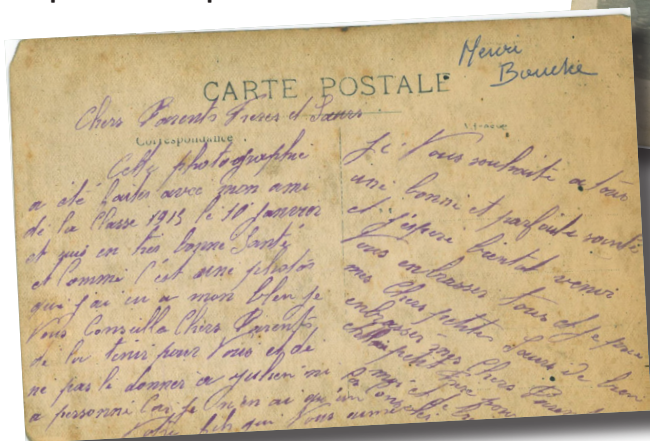 Henri
Bouché
CARTE POSTALE
Chers Parents Freres et Sœurs
Correspondance
Cette photographie
a été faites avec mon ami
de la Classe 1915 le 10 janvier
et suis en très bonne Santé
et Comme C'est une photos
que j'ai eu a mon
Vous Conseille Chers Parents
de la tenir pour Vous et de
ne pas le donner a julien ni
a personne Car je n'en ai qu'un
Votre fils qui Vous aime
Je Vous souhaite a tous
une bonne et parfaite santé
et j'espère bientôt venir
Vous embrasser tous et je
mes Chers petites Sœurs de bien
embrasser mes Chers
petit frère pour
moi et